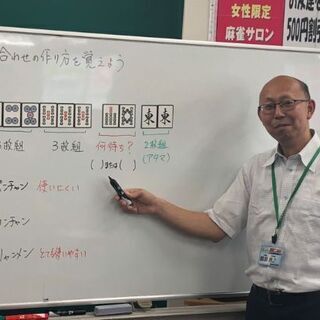 女性限定
麻雀サロン
500円割
合わせの作り方を覚えよう
東 東
3枚組 3枚組 何待ち? 2枚組
(アタマ)
( )または( )
ペンチャン 使いにくい
カンチャン
リャンメン とても使いやすい